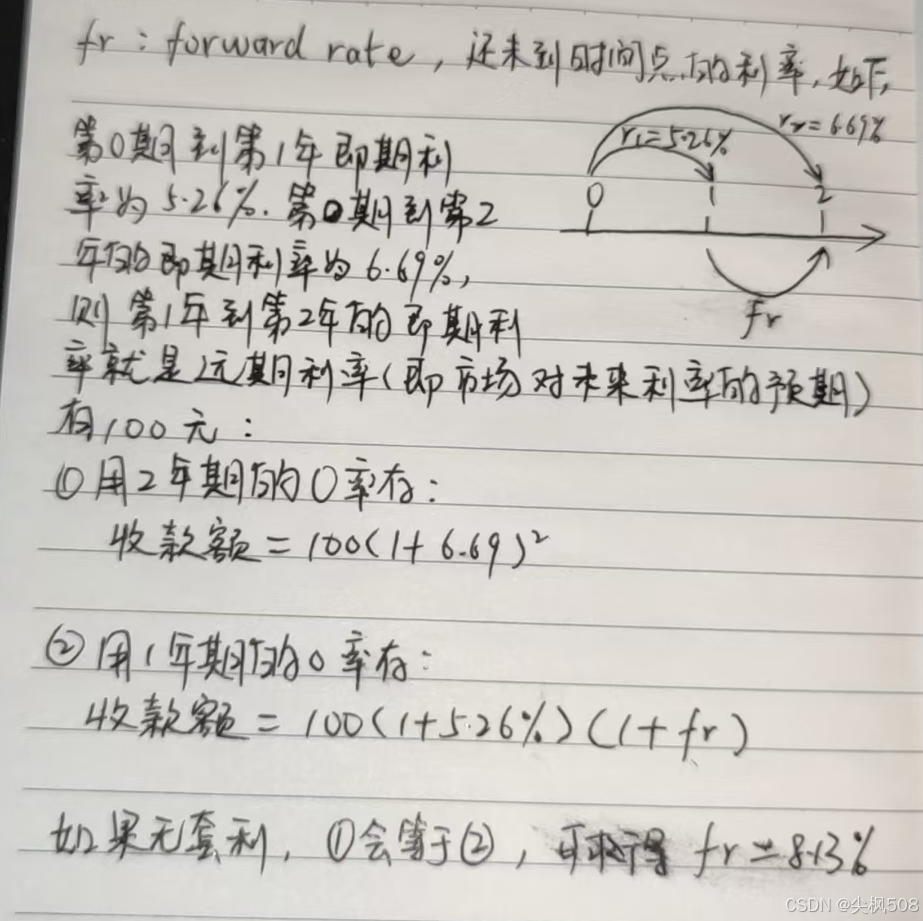 fr：forward rate，还未到时间点的利率，如下，
r₂=6.69%
r₁=5.26%
第0期到第1年即期利
0 1 2
率为5.26%. 第0期到第2
年的即期利率为6.69%，
fr
则第1年到第2年的即期利
率就是远期利率（即市场对未来利率的预期）
有100元：
①用2年期的0率存：
收款额=100(1+6.69)²
②用1年期的0率存：
收款额=100(1+5.26%)(1+fr)
如果无套利，①会等于②，可求得 fr=8.13%
CSDN @尖枫508